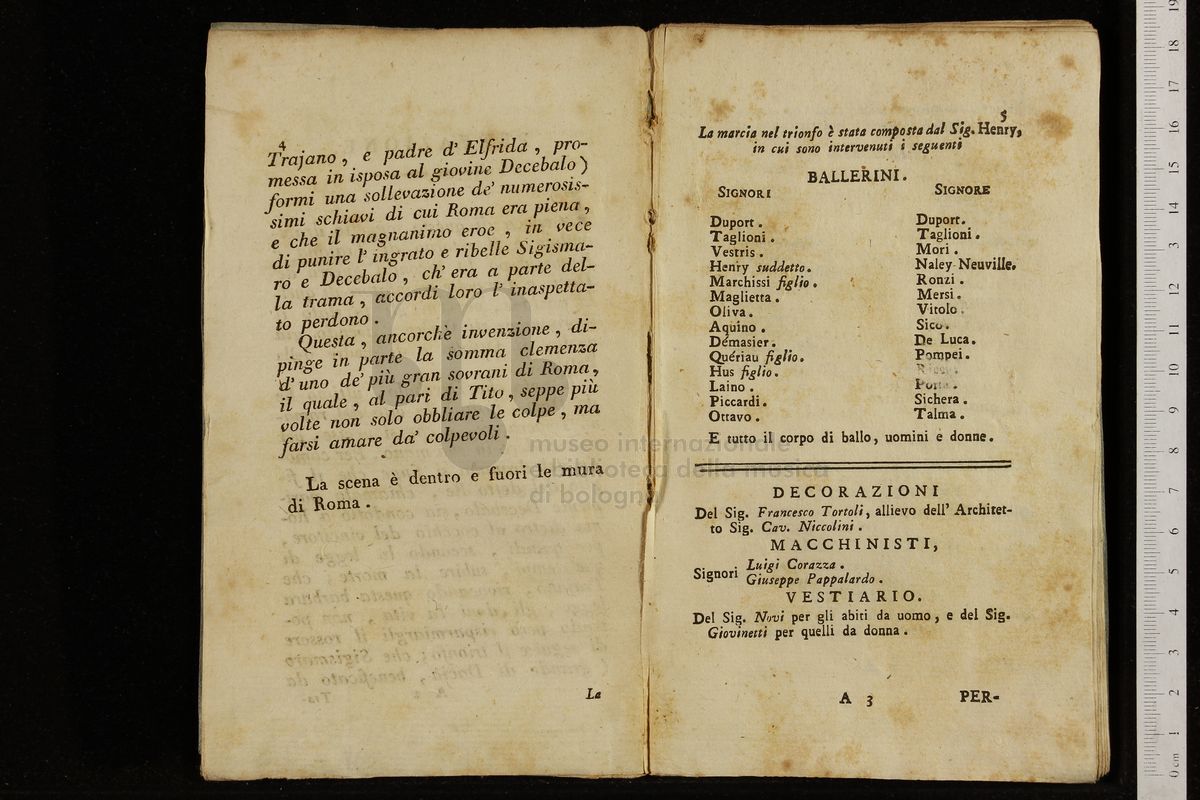 4
Trajano , e padre d' Elfrida , pro-
messa in isposa al giovine Decebalo )
formi una sollevazione de' numerosis-
simi schiavi di cui Roma era piena ,
e che il magnanimo eroe , in vece
di punire l' ingrato e ribelle Sigisma-
ro e Decebalo , ch' era a parte del-
la trama , accordi loro l' inaspetta-
to perdono .
Questa , ancorchè invenzione , di-
pinge in parte la somma clemenza
d' uno de' più gran sovrani di Roma,
il quale , al pari di Tito , seppe più
volte non solo obbliare le colpe , ma
farsi amare da' colpevoli .
La scena è dentro e fuori le mura
di Roma .
La
5
La marcia nel trionfo è stata composta dal Sig. Henry,
in cui sono intervenuti i seguenti
BALLERINI.
SIGNORI
Duport .
Taglioni .
Vestris .
Henry suddetto.
Marchissi figlio .
Maglietta .
Oliva .
Aquino .
Démasier .
Quériau figlio.
Hus figlio .
Laino .
Piccardi .
Ottavo .
SIGNORE
Duport.
Taglioni .
Mori .
Naley Neuville.
Ronzi .
Mersi .
Vitolo .
Sico .
De Luca .
Pompei .
Porta .
Sichera .
Talma .
E tutto il corpo di ballo, uomini e donne.
DECORAZIONI
Del Sig. Francesco Tortoli, allievo dell' Architet-
to Sig. Cav. Niccolini .
MACCHINISTI,
Signori Luigi Corazza .
Giuseppe Pappalardo .
VESTIARIO.
Del Sig. Novi per gli abiti da uomo , e del Sig.
Giovinetti per quelli da donna .
A 3 PER-
museo internazionale
e biblioteca della musica
di bologna